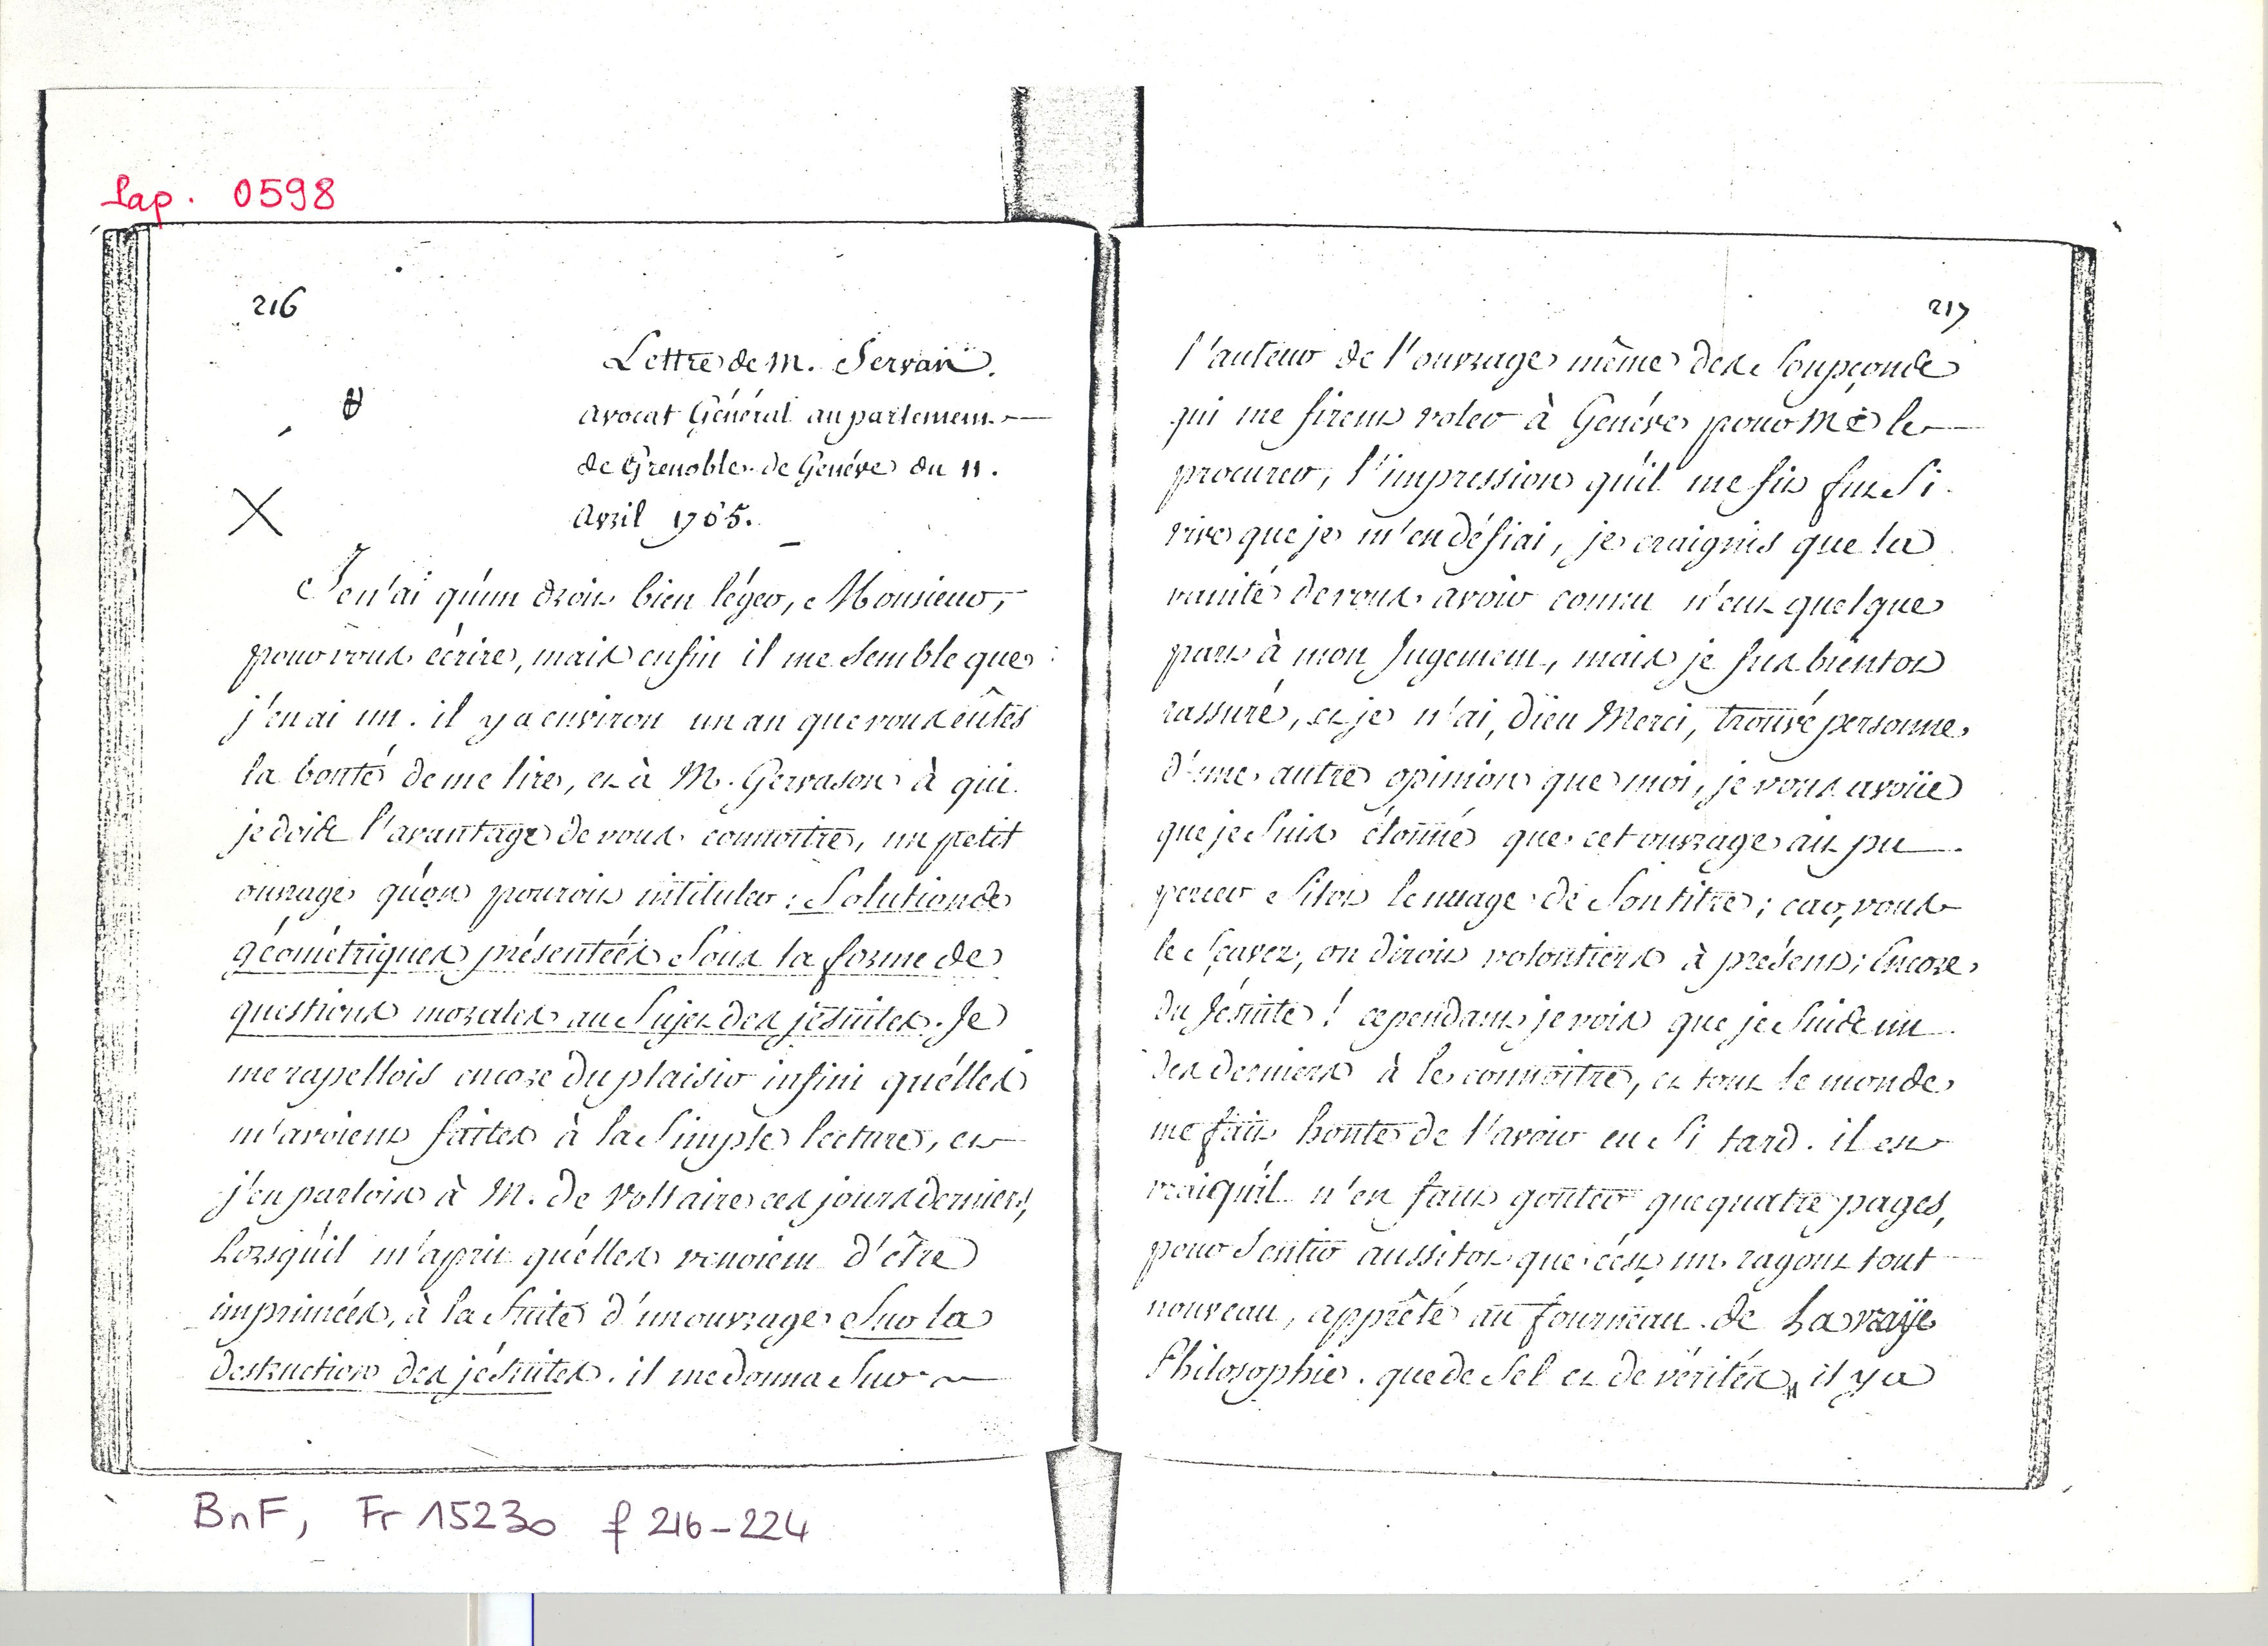 Lap. 0598
216
Lettre de M. Servan.
avocat Général au parlement
de Grenoble de Genéve du 11.
avril 1765.
Je n'ai qu'un droit bien léger, Monsieur,
pour vous écrire, mais enfin il me semble que
j'en ai un. il y a environ un an que vous eûtes
la bonté de me lire, et à M. Gervason à qui
je dois l'avantage de vous connoitre, un petit
ouvrage qu'on pouroit intituler : Solutions
géométriques présentées Sous la forme de
questions morales au Sujet des jésuites. Je
me rapellois encore du plaisir infini qu'elles
m'avoient faites à la Simple lecture, et
j'en parlois à M. de Voltaire ces jours derniers,
Lorsqu'il m'aprit qu'elles venoient d'être
imprimées, à la Suite d'un ouvrage Sur la
destruction des jésuites. il me donna Sur
BnF, Fr 15230 f 216-224
217
l'auteur de l'ouvrage même des Soupçons
qui me firent voler à Genéve pour me le
procurer, l'impression qu'il me fit fut Si
vive que je m'en défiai, je craignis que la
vanité de vous avoir connu n'eut quelque
part à mon Jugement, mais je fus bientot
rassuré, et je n'ai, dieu Merci, trouvé personne
d'une autre opinion que moi, je vous avoüe
que je Suis étonné que cet ouvrage ait pu
percer Sitot le nuage de Son titre ; car, vous
le Sçavez, on diroit volontiers à présent ; Encore
du Jésuite ! cependant je vois que je Suis un
des derniers à le connoitre, et tout le monde
me fait honte de l'avoir eu Si tard. il est
vrai qu'il n'en faut gouter que quatre pages,
pour Sentir aussitot que c'est un ragout tout
nouveau, apprêté au fourneau de La vraÿe
Philosophie. que de Sel et de vérités, il y a